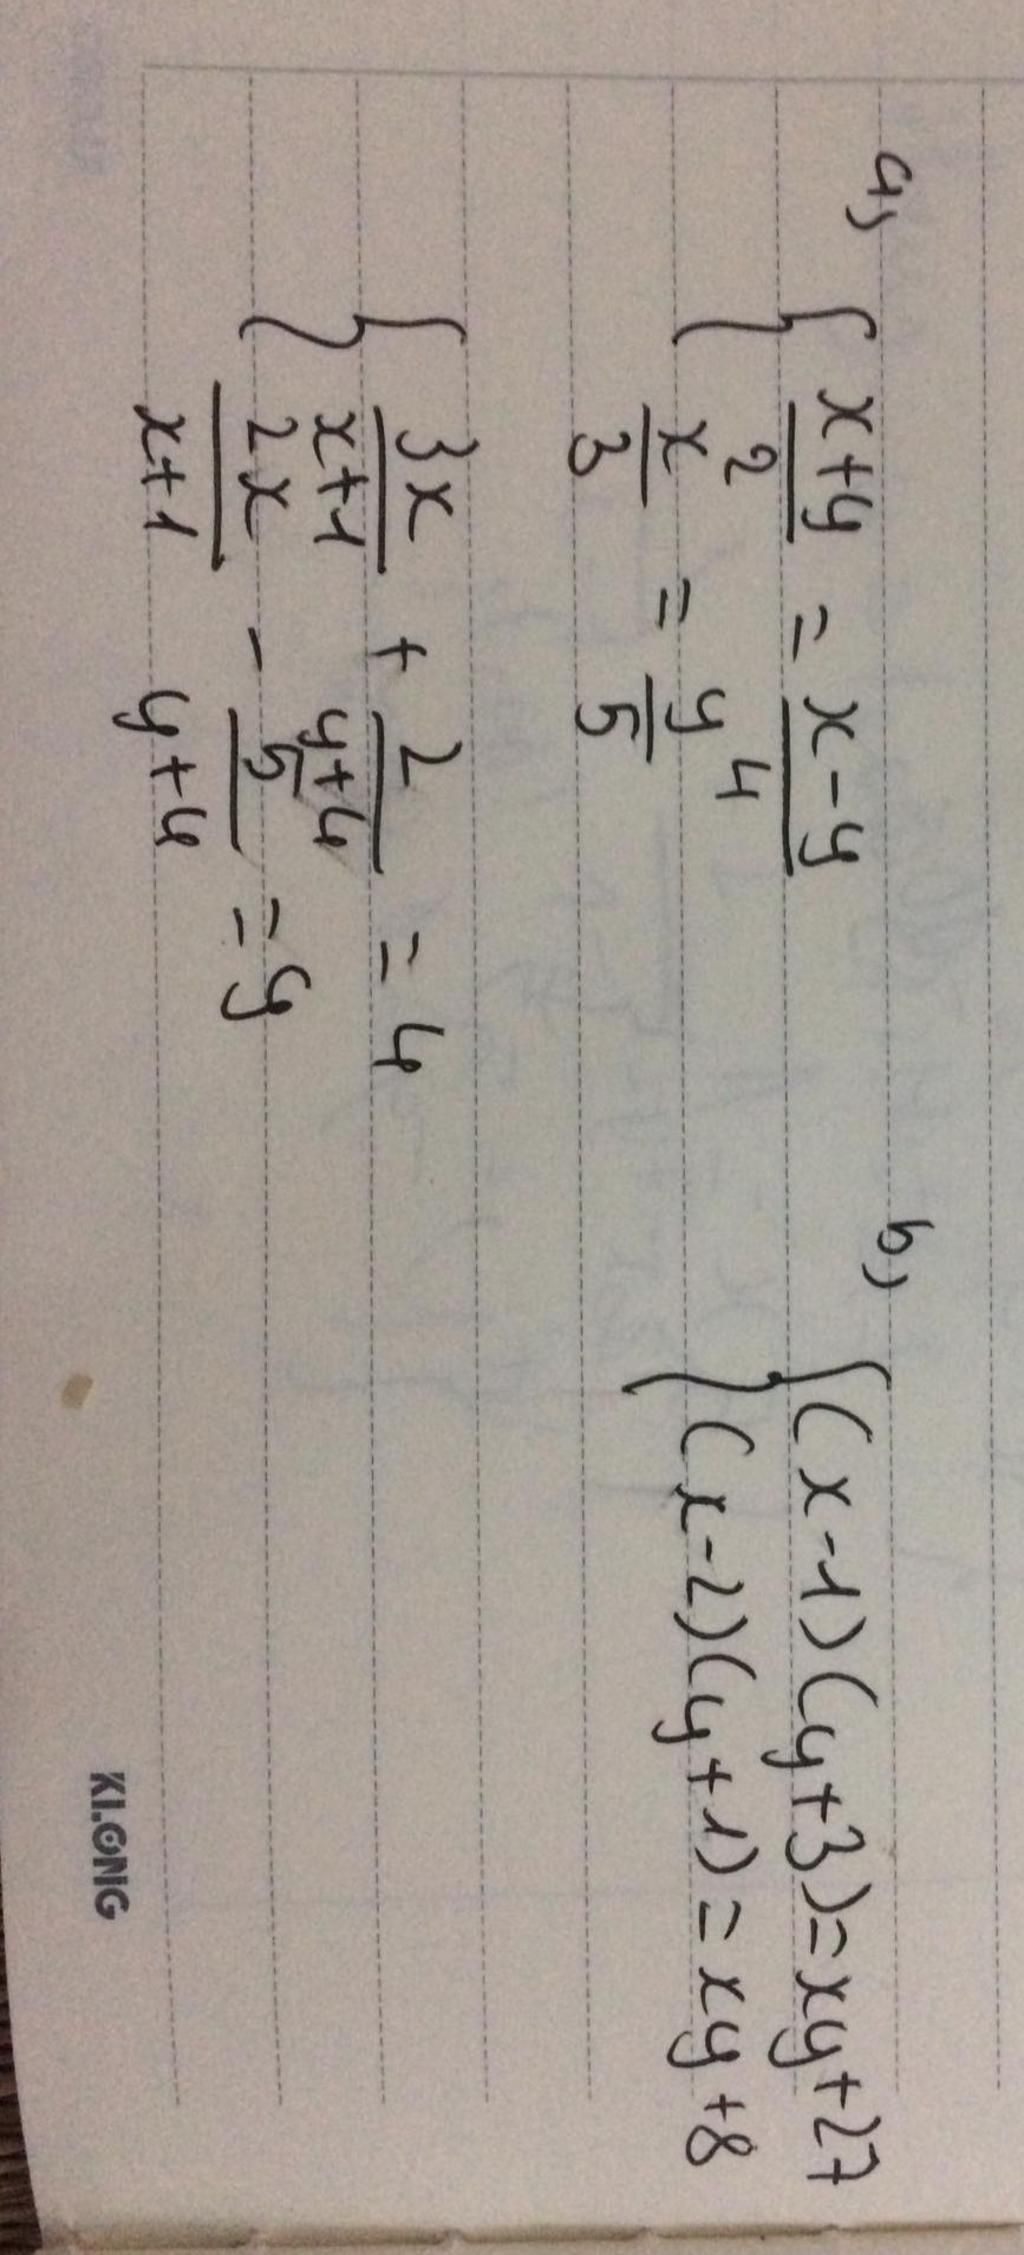 a) { (x+y)/2 = (x-y)/4
x/3 = y/5
b) { (x-1)(y+3)=xy+27
(x-2)(y+1)=xy+8
{ 3x/(x+1) + 2/(y+4) = 4
2x/(x+1) - 5/(y+4) = y
KLONG